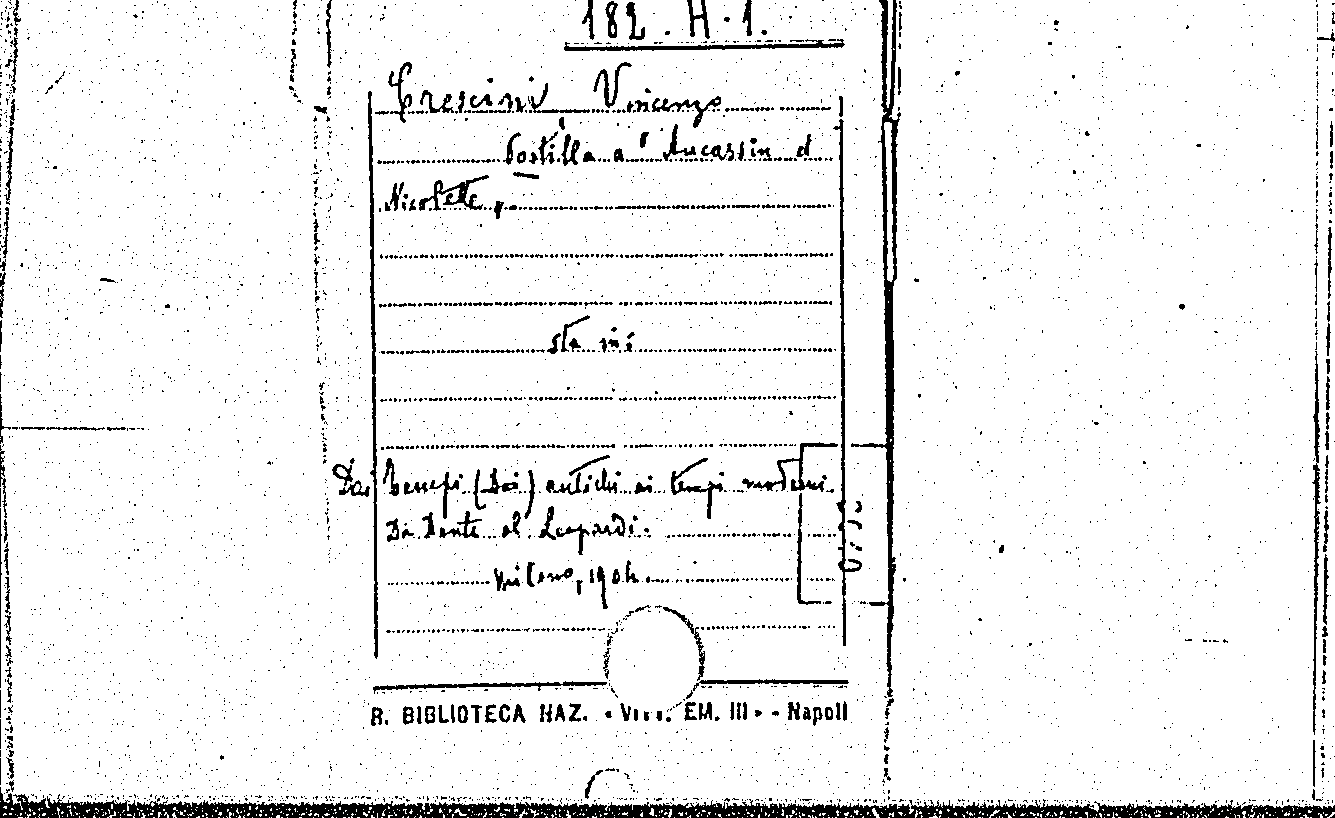 182. H. 1.
Crescini Vincenzo
Postilla a "Aucassin et
Nicolette".
sta in:
Dai tempi (Dai) antichi ai tempi moderni.
Da Dante al Leopardi.
Milano, 1904.
R. BIBLIOTECA NAZ. « VITT. EM. III » - Napoli